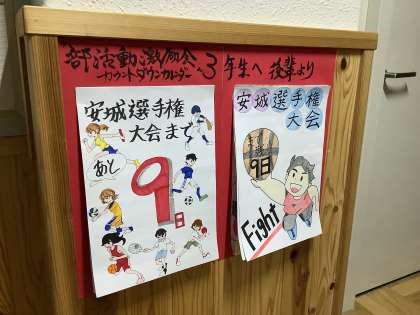 部活動激励会
カウントダウンカレンダー
~3年生へ 後輩より
安城選手権
大会まで
あと
9日
安城選手権
大会
9日
Fight